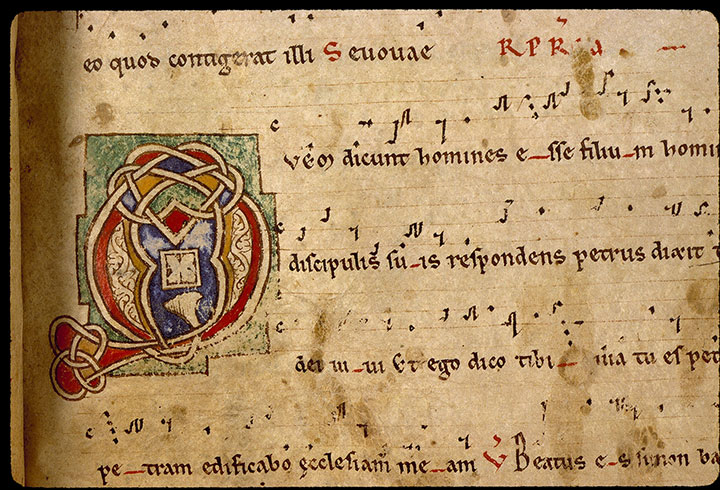 eo quod contigerat illi Seuouae R P R A
QVEM dicunt homines e_sse filiu_m homin
discipulis su_is respondens petrus dixit t
dei ui_ui Et ego dico tibi_ tu es pet
pe_tram edificabo ęcclesiam me_am V Beatus e_s simon ba